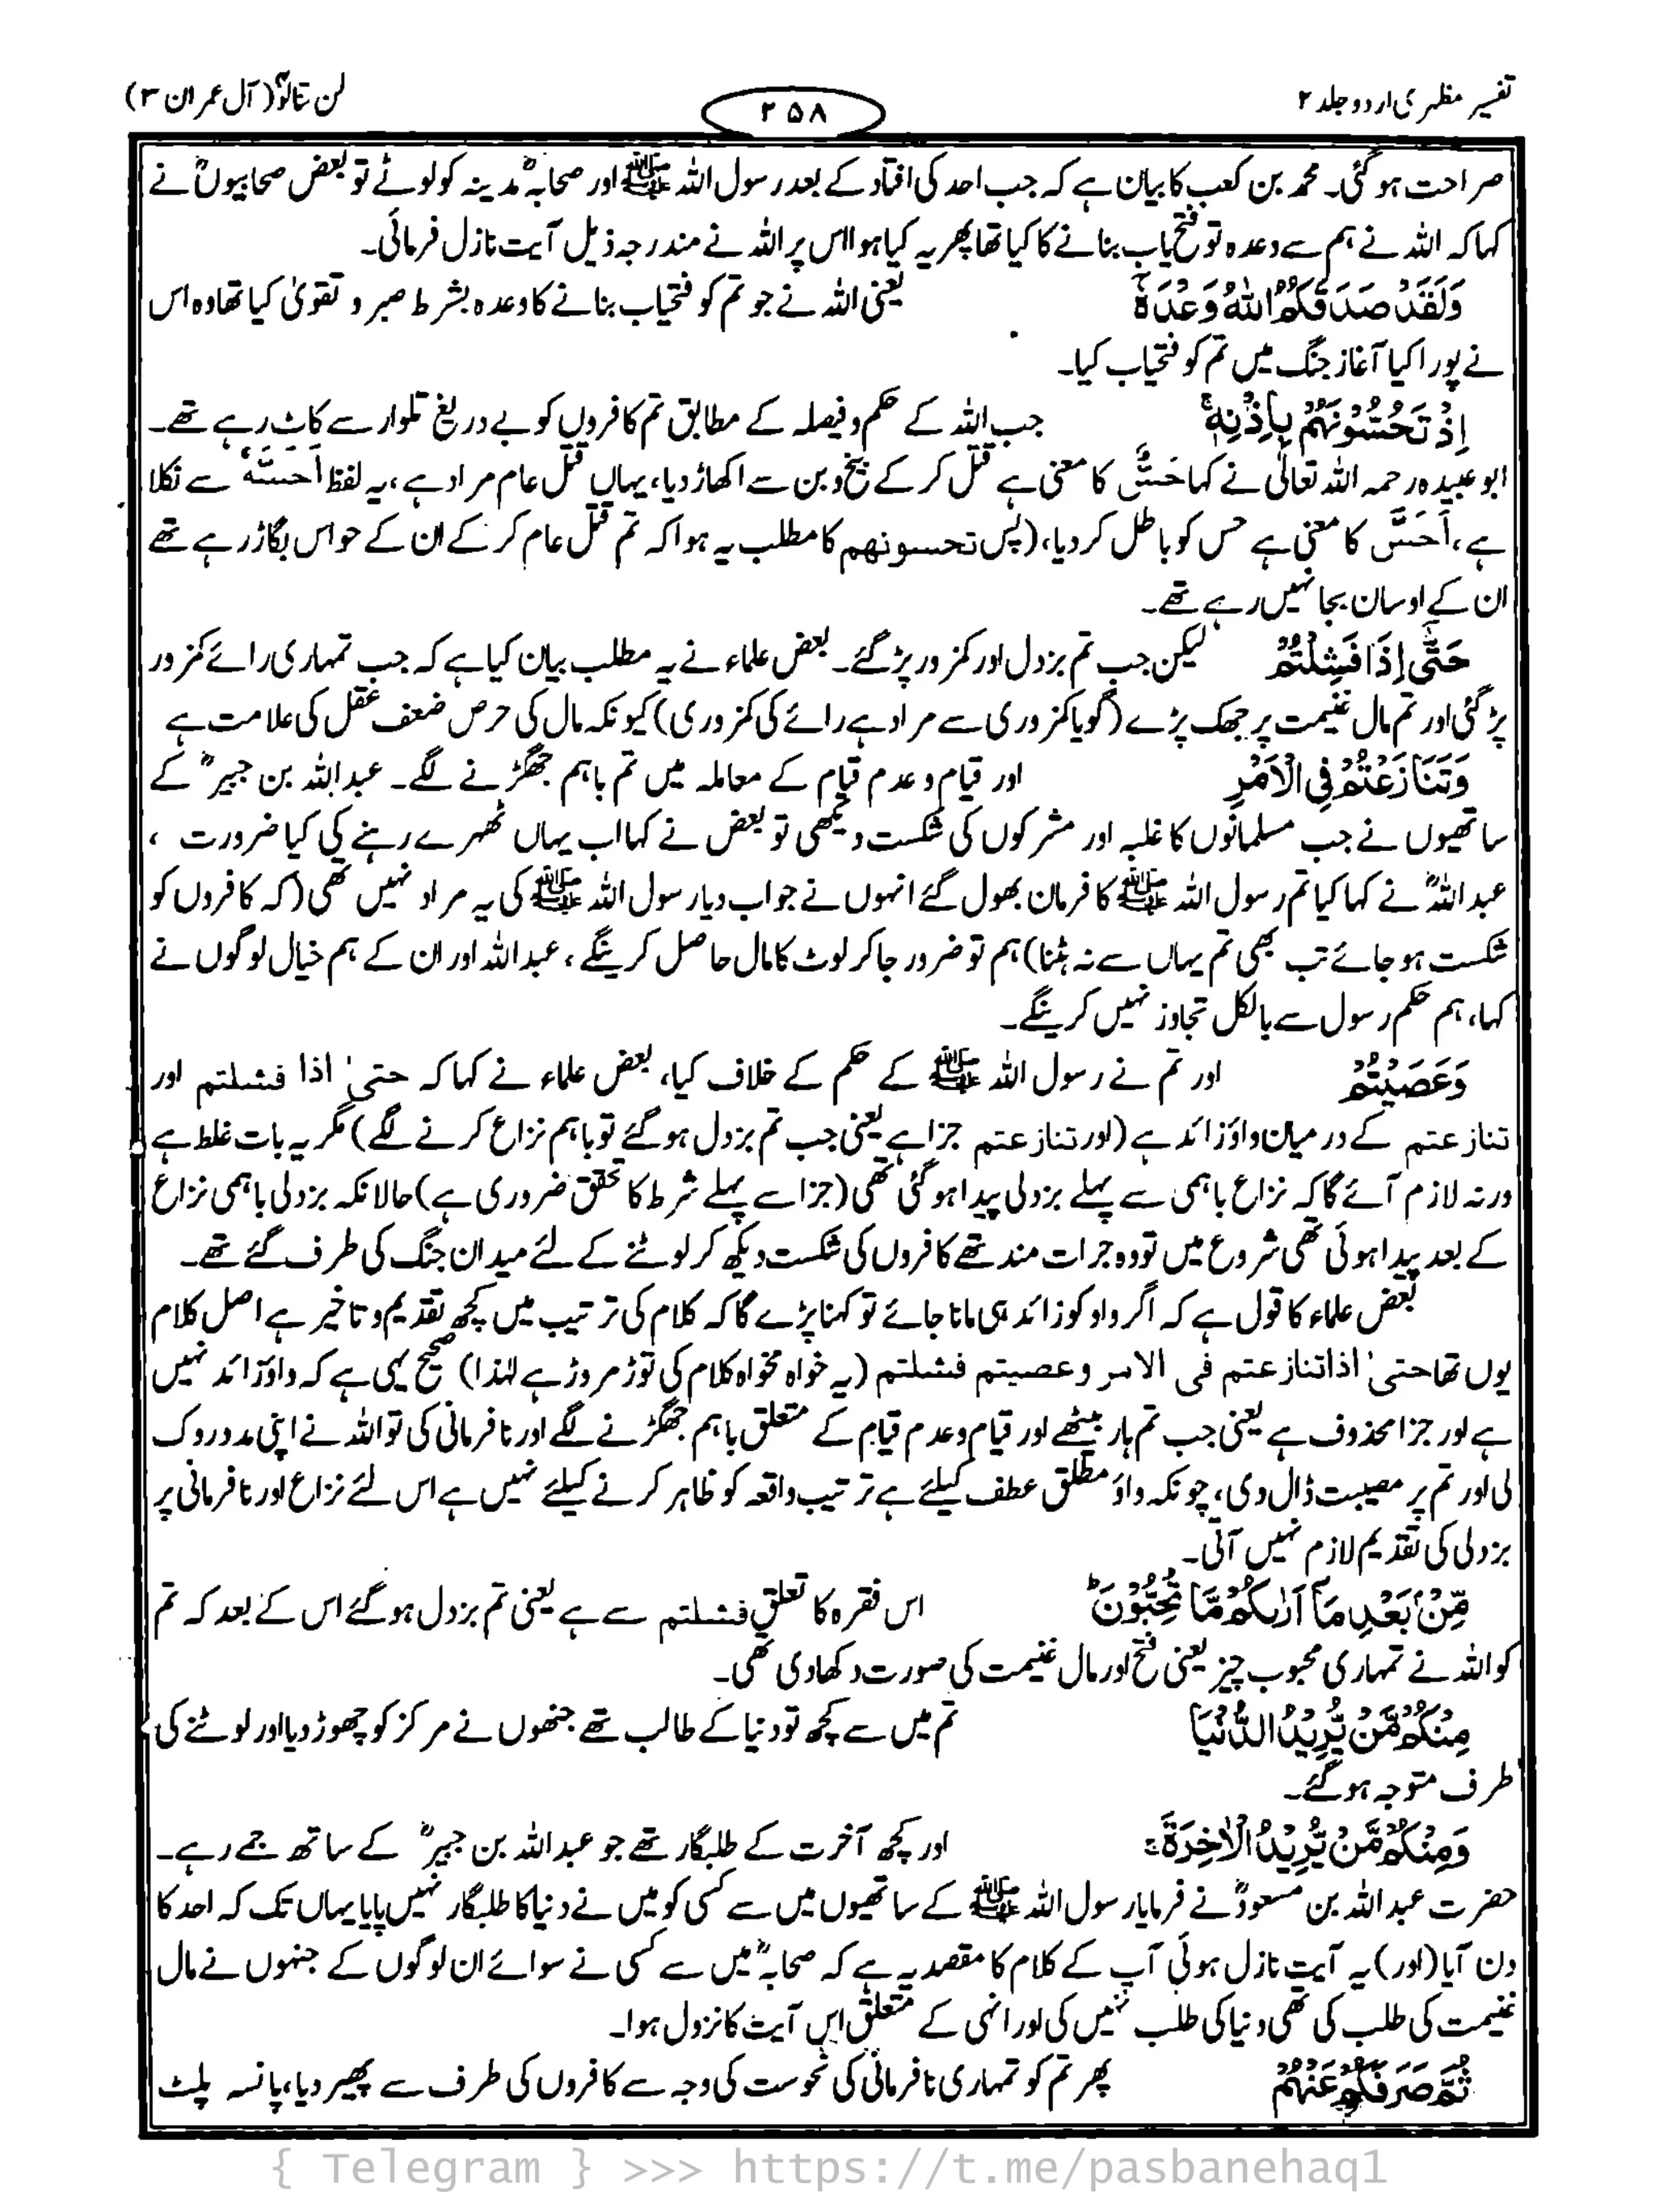 تفسیر مظہری اردو جلد ۲
۲۵۸
لن تنالوا (آل عمران ۳)
صراحت ہو گئی۔ محمد بن کعب کا بیان ہے کہ جب احد کی افتاد کے بعد رسول اللہ ﷺ اور صحابہؓ مدینہ کو لوٹے تو بعض صحابیوںؓ نے
کہا کہ اللہ نے ہم سے وعدہ تو فتح یاب بنانے کا کیا تھا پھر یہ کیا ہوا اس پر اللہ نے مندرجہ ذیل آیت نازل فرمائی۔
وَلَقَدْ صَدَقَكُمُ اللّٰهُ وَعْدَهٗٓ یعنی اللہ نے جو تم کو فتحیاب بنانے کا وعدہ بشرط صبر و تقویٰ کیا تھا وہ اس
نے پورا کیا آغاز جنگ میں تم کو فتحیاب کیا۔
اِذْ تَحُسُّوْنَهُمْ بِاِذْنِهٖ ۚ جب اللہ کے حکم و فیصلہ کے مطابق تم کافروں کو بے دریغ تلوار سے کاٹ رہے تھے۔
ابو عبیدہ رحمہ اللہ تعالیٰ نے کہا حَسٌّ کا معنی ہے قتل کر کے بیخ و بن سے اکھاڑ دیا، یہاں قتل عام مراد ہے، یہ لفظ اَحَسَّهٗ سے نکلا
ہے، اَحَسَّ کا معنی ہے حس کو باطل کر دیا، (پس تحسونهم کا مطلب یہ ہوا کہ تم قتل عام کر کے ان کے حواس بگاڑ رہے تھے
ان کے اوسان بجا نہیں رہے تھے۔
حَتّٰٓى اِذَا فَشِلْتُمْ لیکن جب تم بزدل اور کمزور پڑ گئے۔ بعض علماء نے یہ مطلب بیان کیا ہے کہ جب تمہاری رائے کمزور
پڑ گئی اور تم مال غنیمت پر جھک پڑے (گویا کمزوری سے مراد ہے رائے کی کمزوری) کیونکہ مال کی حرص ضعف عقل کی علامت ہے
وَتَنَازَعْتُمْ فِي الْاَمْرِ اور قیام و عدم قیام کے معاملہ میں تم باہم جھگڑنے لگے۔ عبداللہ بن جبیرؓ کے
ساتھیوں نے جب مسلمانوں کا غلبہ اور مشرکوں کی شکست دیکھی تو بعض نے کہا اب یہاں ٹھہرے رہنے کی کیا ضرورت ،
عبداللہؓ نے کہا کیا تم رسول اللہ ﷺ کا فرمان بھول گئے انہوں نے جواب دیا رسول اللہ ﷺ کی یہ مراد نہیں تھی (کہ کافروں کو
شکست ہو جائے تب بھی تم یہاں سے نہ ہٹنا) ہم تو ضرور جا کر لوٹ کا مال حاصل کرینگے، عبداللہ اور ان کے ہم خیال لوگوں نے
کہا، ہم حکم رسول سے بالکل تجاوز نہیں کرینگے۔
وَعَصَيْتُمْ اور تم نے رسول اللہ ﷺ کے حکم کے خلاف کیا، بعض علماء نے کہا کہ حتیٰ اذا فشلتم اور
تنازعتم کے درمیان واؤ زائد ہے (اور تنازعتم جزا ہے یعنی جب تم بزدل ہو گئے تو باہم نزاع کرنے لگے) مگر یہ بات غلط ہے
ورنہ لازم آئے گا کہ نزاع باہمی سے پہلے بزدلی پیدا ہو گئی تھی (جزا سے پہلے شرط کا تحقق ضروری ہے) حالانکہ بزدلی باہمی نزاع
کے بعد پیدا ہوئی تھی شروع میں تو وہ جرات مند تھے کافروں کی شکست دیکھ کر لوٹنے کے لئے میدان جنگ کی طرف گئے تھے۔
بعض علماء کا قول ہے کہ اگر واو کو زائد ہی مانا جائے تو کہنا پڑے گا کہ کلام کی ترتیب میں کچھ تقدیم و تاخیر ہے اصل کلام
یوں تھا حتیٰ اذا تنازعتم فی الامر وعصیتم فشلتم (یہ خواہ مخواہ کلام کی توڑ مروڑ ہے لہٰذا) صحیح یہی ہے کہ واؤ زائد نہیں
ہے اور جزا محذوف ہے یعنی جب تم ہار بیٹھے اور قیام و عدم قیام کے متعلق باہم جھگڑنے لگے اور نافرمانی کی تو اللہ نے اپنی مدد روک
لی اور تم پر مصیبت ڈال دی، چونکہ واؤ مطلق عطف کیلئے ہے ترتیب واقعہ کو ظاہر کرنے کیلئے نہیں ہے اس لئے نزاع اور نافرمانی پر
بزدلی کی تقدیم لازم نہیں آتی۔
مِّنْۢ بَعْدِ مَآ اَرٰىكُمْ مَّا تُحِبُّوْنَ ؕ اس فقرہ کا تعلق فشلتم سے ہے یعنی تم بزدل ہو گئے اس کے بعد کہ تم
کو اللہ نے تمہاری محبوب چیز یعنی فتح اور مال غنیمت کی صورت دکھا دی تھی۔
مِنْكُمْ مَّنْ يُّرِيْدُ الدُّنْيَا تم میں سے کچھ تو دنیا کے طالب تھے جنھوں نے مرکز کو چھوڑ دیا اور لوٹنے کی
طرف متوجہ ہو گئے۔
وَمِنْكُمْ مَّنْ يُّرِيْدُ الْاٰخِرَةَ ۚ اور کچھ آخرت کے طلبگار تھے جو عبداللہ بن جبیرؓ کے ساتھ جمے رہے۔
حضرت عبداللہ بن مسعودؓ نے فرمایا رسول اللہ ﷺ کے ساتھیوں میں سے کسی کو میں نے دنیا کا طلبگار نہیں پایا یہاں تک کہ احد کا
دن آیا (اور) یہ آیت نازل ہوئی آپ کے کلام کا مقصد یہ ہے کہ صحابہؓ میں سے کسی نے سوائے ان لوگوں کے جنہوں نے مال
غنیمت کی طلب کی تھی دنیا کی طلب نہیں کی اور انہی کے متعلق اس آیت کا نزول ہوا۔
ثُمَّ صَرَفَكُمْ عَنْهُمْ پھر تم کو تمہاری نافرمانی کی نحوست کی وجہ سے کافروں کی طرف سے پھیر دیا، پانسہ پلٹ
{ Telegram } >>> https://t.me/pasbanehaq1